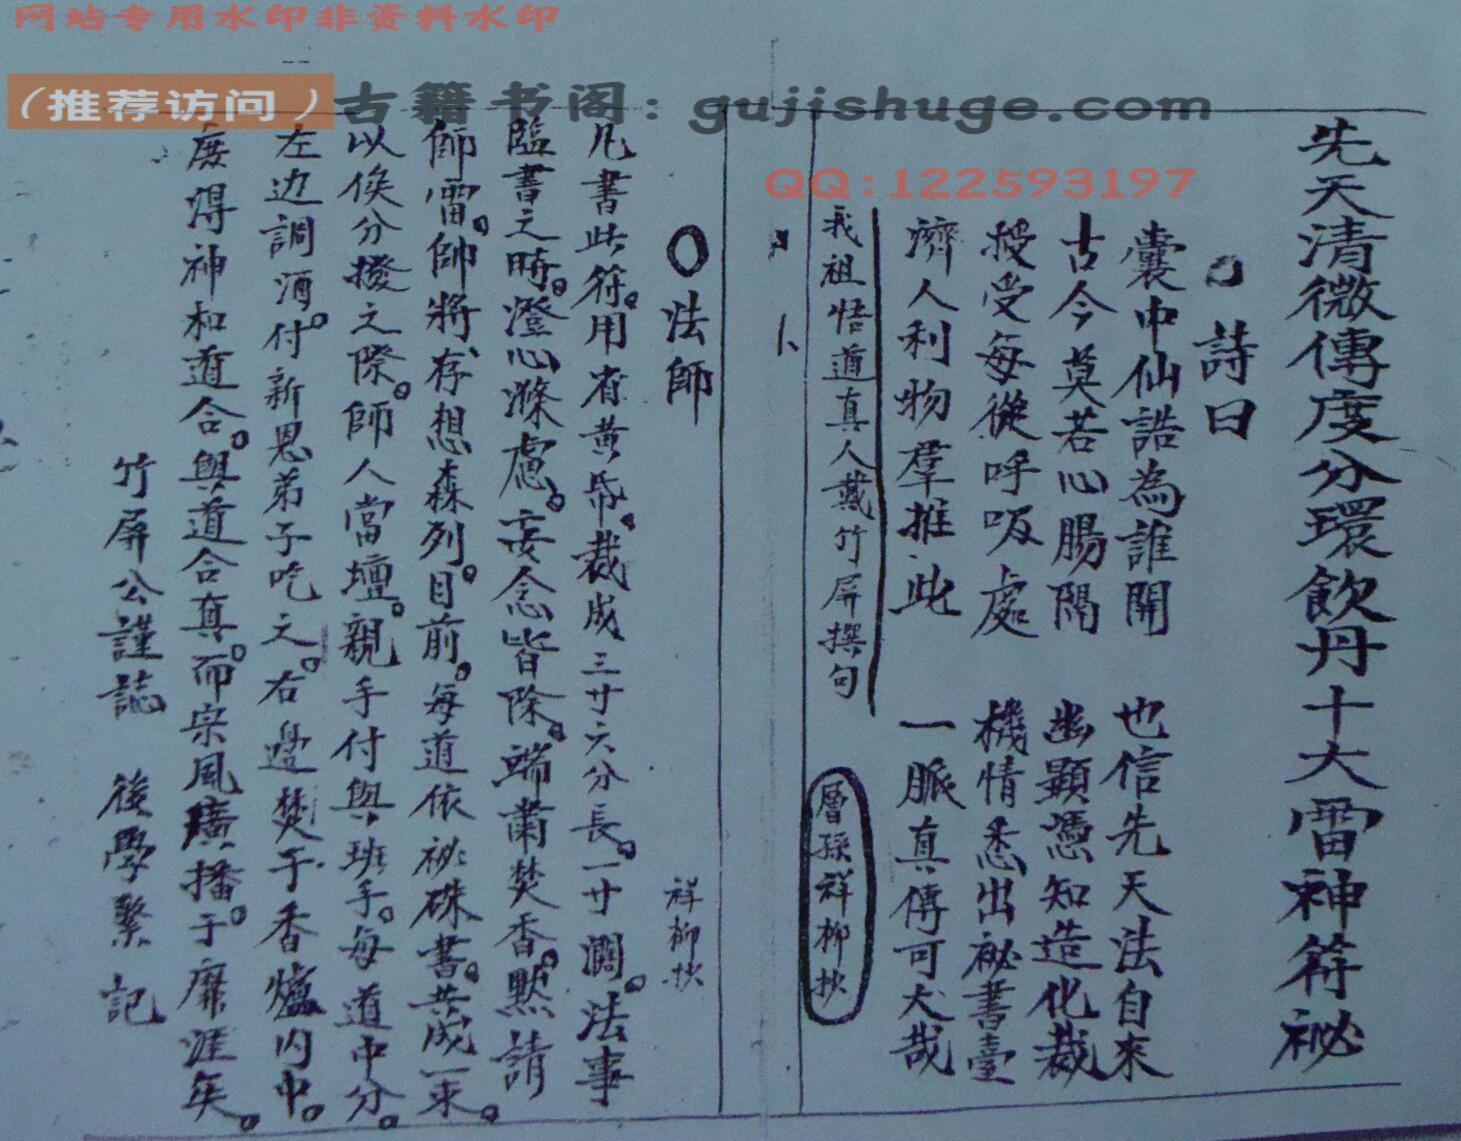 网站专用水印非资料水印
（推荐访问）古籍书阁：gujishuge.com
QQ:122593197
先天清微傳度分環飲丹十大雷神符祕
詩曰
囊中仙誥為誰開 也信先天法自來
古今莫若心腸隔 幽顯憑知造化裁
授受每從呼吸處 機情悉出祕書臺
濟人利物羣推此 一脈真傳可大哉
我祖悟道真人戴竹屏撰句
層孫祥柳抄
法師 祥柳抄
凡書此符。用省黄帋。裁成三寸六分長。一寸濶。法事
臨書之時。澄心滌慮。妄念皆除。端肅焚香。默請
師雷。帥將。存想森列。目前。每道依祕硃書。共成一束。
以俟分撥之際。師人當壇。親手付與班手。每道中分。
左边調酒。付新恩弟子吃之。右邊焚于香爐内中。
庶得神和道合。與道合真。而宗風廣播。于靡涯矣。
竹屏公謹誌 後學繫記